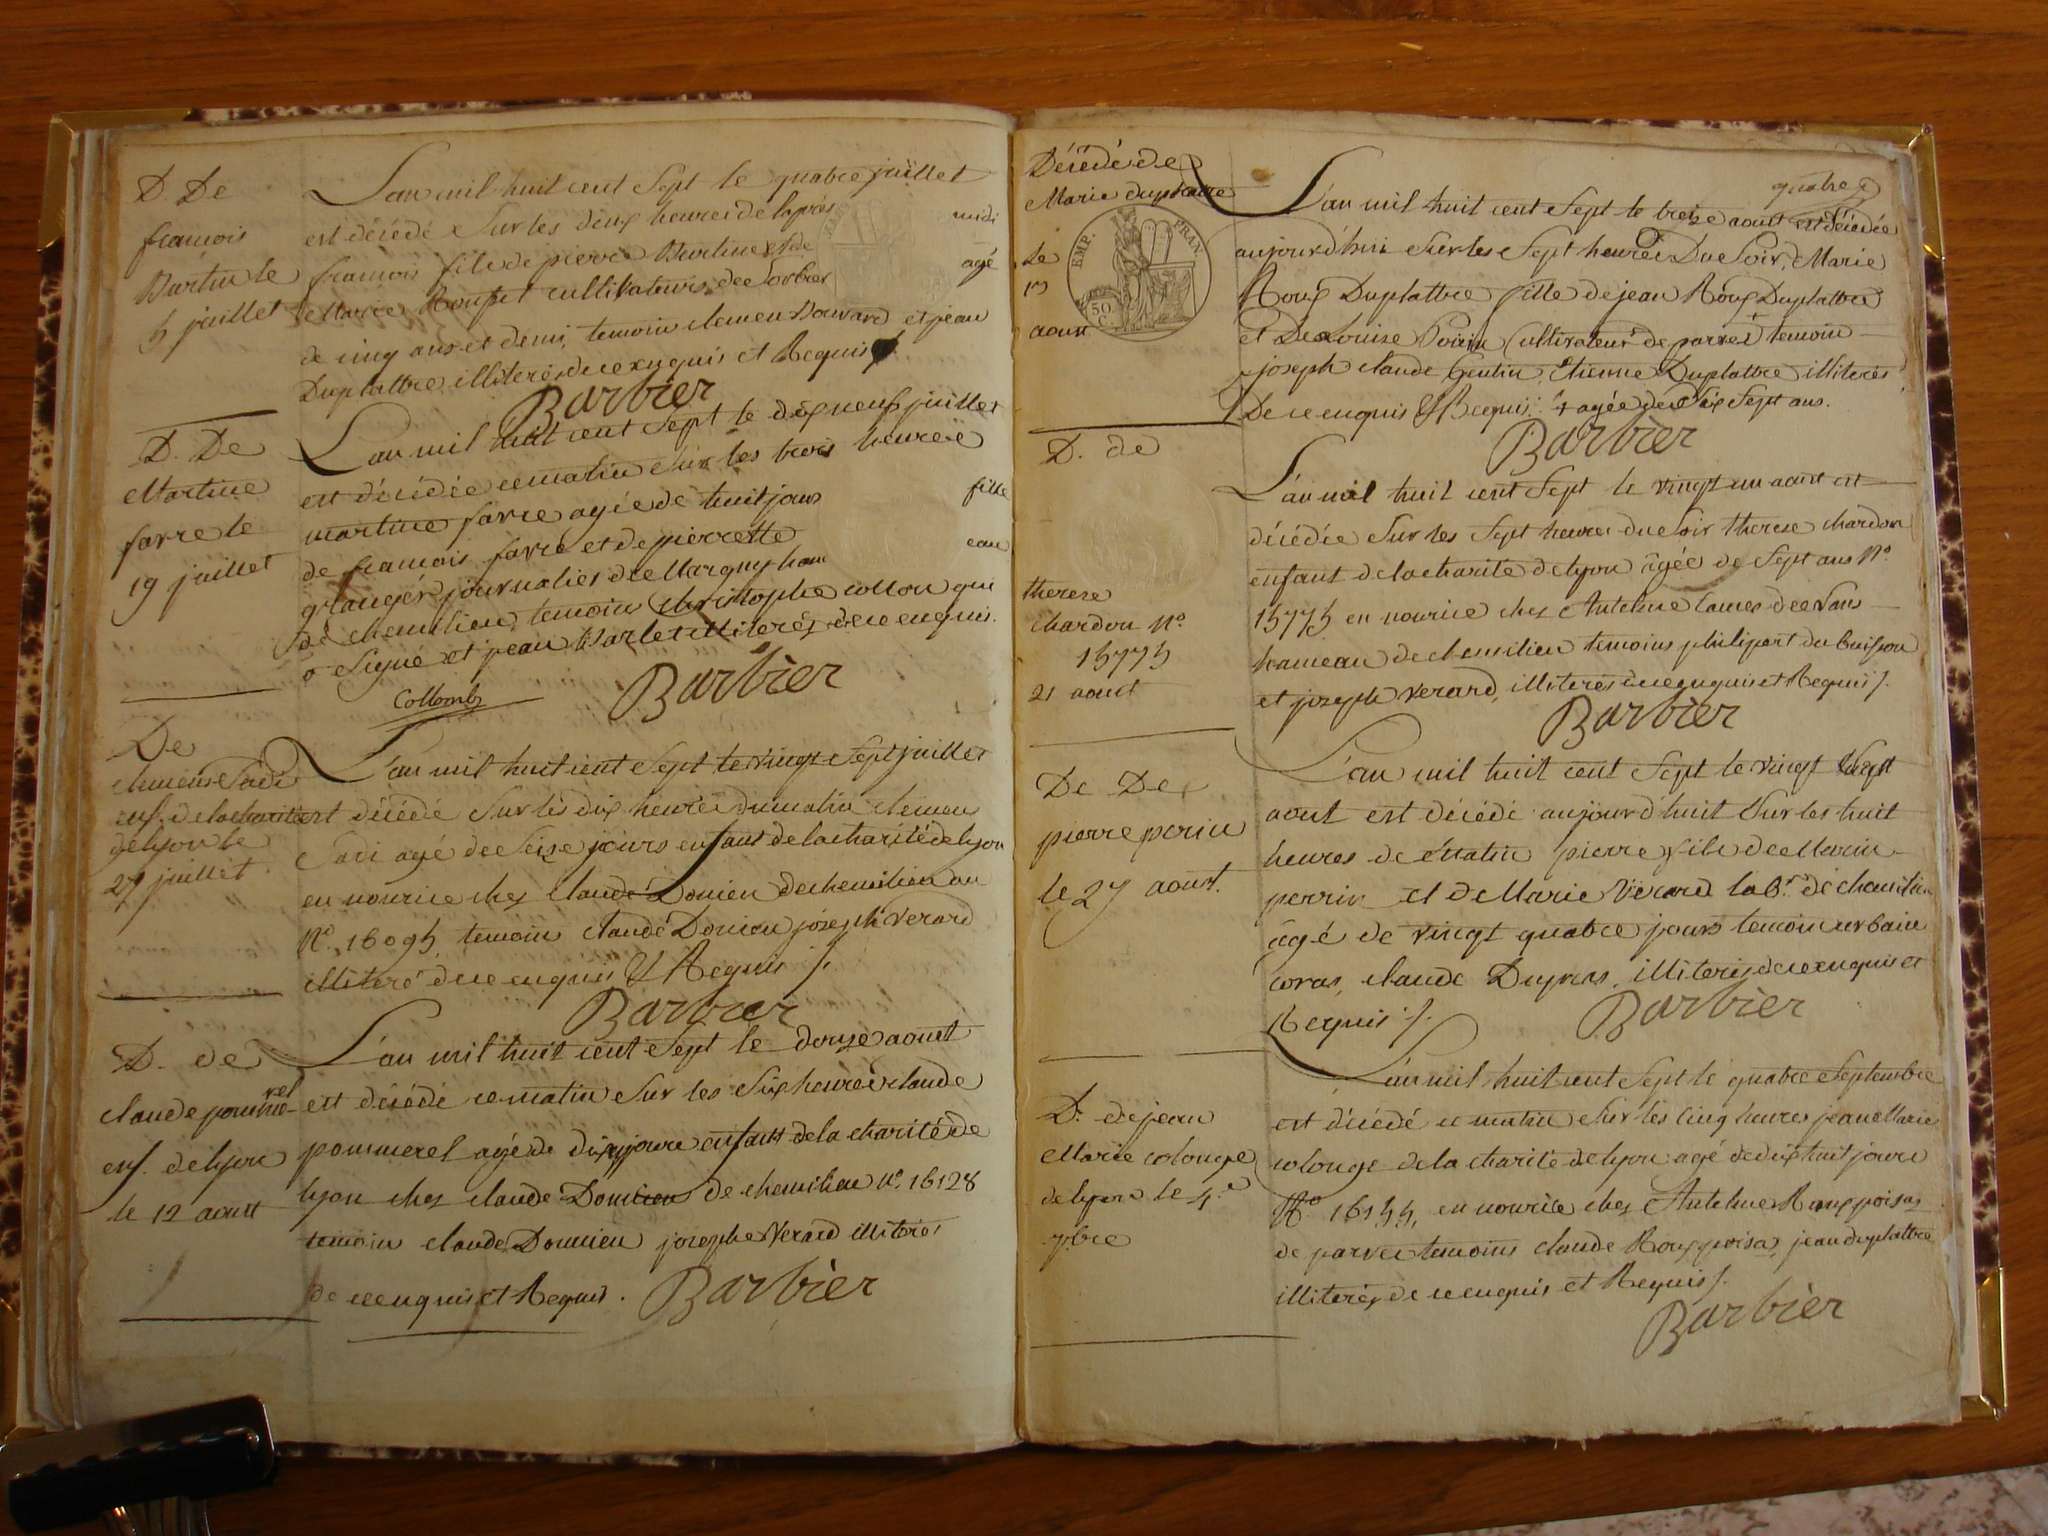 D. De
françois
Burtin le
5 juillet
L'an mil huit cent Sept le quatre juillet
est décédé Sur les deux heures de l'après midi
françois fils de pierre Burtin et de
Marie Rousset cultivateurs de Corbet agé
de cinq ans et demi, temoin clemen et jean
Duplattre illiterés de ce enquis et Requis
Barbier
D. De
Martine
favre le
19 juillet
L'an mil huit cent Sept le dix neuf juillet
est décédée ce matin Sur les trois heures
martine favre agée de huit jours fille
de françois favre et de pierrette
granger journalier de Margny hameau
de chemilieu, temoin Christophe collon qui
a Signé et jean illiterés de ce enquis.
Collomb
Barbier
De
clemens Sadi
enf. de la charité
de lyon le
27 juillet
L'an mil huit cent Sept le vingt Sept juillet
est décédé Sur les dix heures du matin clemen
Sadi agé de Seize jours enfant de la charité de lyon
en nourice chez claude Douien de chemilieu au
N.° 16095, temoin claude Douien joseph Verard
illiteré de ce enquis & Requis /.
Barbier
D. de
claude pommerel
enf. de lyon
le 12 aoust
L'an mil huit cent Sept le douze aoust
est décédé ce matin Sur les Six heures claude
pommerel agé de dix jours enfant de la charité de
lyon chez claude de chemilieu N.° 16128
temoin claude Doucien joseph Verard illiterés
de ce enquis et Requis.
Barbier
Décédé de
Marie duplattre
Le
aoust
EMP. FRAN.
50
C.
quatre
L'an mil huit cent Sept le treize aoust est décédée
aujourd'hui Sur les Sept heures Du Soir, Marie
Roux Duplattre fille de jean Roux Duplattre
et De Louise Poirin Cultivateur de parves + temoin
joseph claude Gentin, Etienne Duplattre illiterés
De ce enquis & Requis. + agée de dix Sept ans.
Barbier
D. de
therese
chardon N.°
15775
21 aoust
L'an mil huit cent Sept le vingt un aoust est
décédée Sur les Sept heures du Soir therese chardon
enfant de la charité de lyon agée de Sept ans N.°
15775 en nourice chez Antelme de
hameau de chemilieu temoins philipert du buisson
et joseph Verard, illiterés de ce enquis et Requis /.
Barbier
De De
pierre perin
le 27 aoust.
L'an mil huit cent Sept le vingt Sept
aoust est décédé aujourd'huit Sur les huit
heures de Matin pierre fils de Marin
perrin et de Marie Verard lab.r de chemilieu
agé de vingt quatre jours temoin urbain
coras, claude Dupras, illiterés de ce enquis et
Requis /.
Barbier
D. de jean
Marie colonge
de lyon le 4.e
7bre
L'an mil huit cent Sept le quatre Septembre
est décédé ce matin Sur les cinq heures jean Marie
colonge de la charité de lyon agé de dix huit jours
N.° 16155, en nourice chez Antelme Roux poisat
de parves temoins claude Roux poisat, jean duplattre
illiterés de ce enquis et Requis /.
Barbier